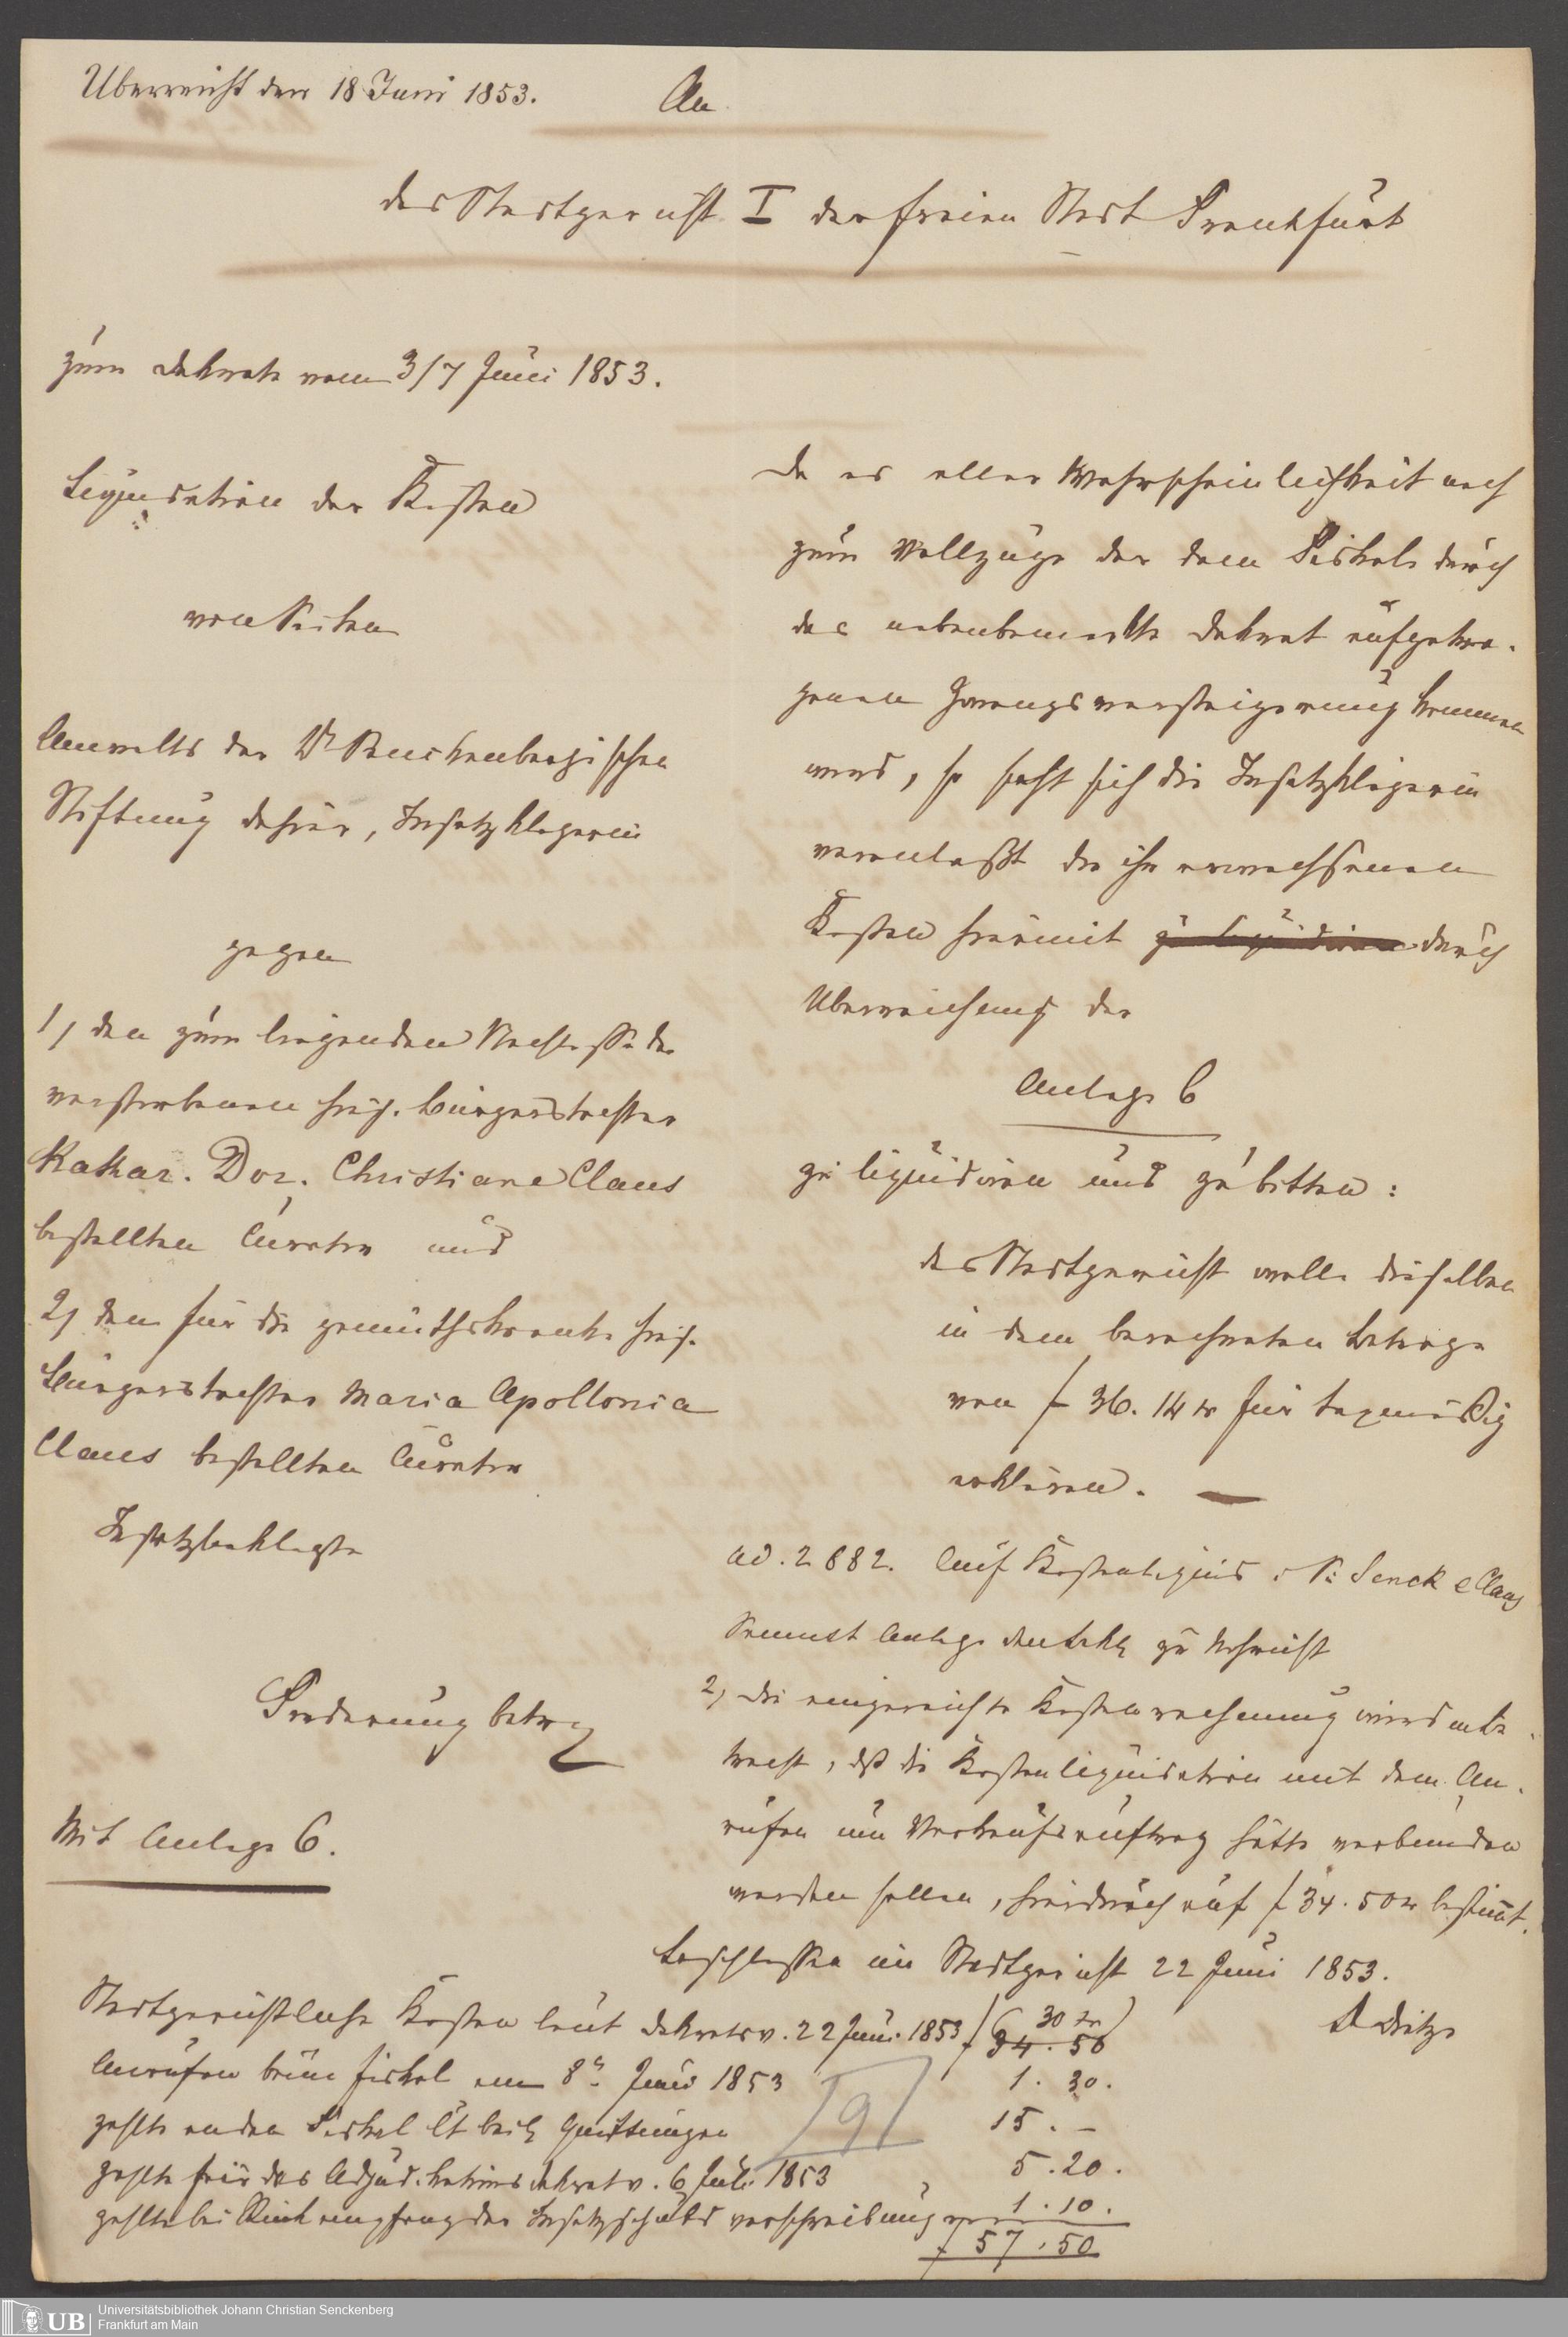 Überreicht den 18 Juni 1853.
An
das Stadtgericht I der freien Stadt Frankfurt
zum Dekrete vom 3/7 Juni 1853.
Liquidation der Kosten
von Seiten
Anwalts der Dr Senckenbergischen
Stiftung dahier, Insatzklägerin
gegen
1, den zum liegenden Nachlasse der
verstorbenen hies. Bürgerstochter
Kathar. Dor. Christiane Claus
bestellten Curator und
2, den für die gemüthskranke hies.
Bürgerstochter Maria Apollonia
Claus bestellten Curator
Insatzbeklagte
Forderung betrg
Mit Anlage 6.
Da es aller Wahrscheinlichkeit nach
zum Vollzuge der dem Fiskale durch
das nebenbemerkte Dekret aufgetra-
genen Zwangsversteigerung kommen
wird, so sieht sich die Insatzklägerin
veranlaßt die ihr erwachsenen
Kosten hiermit zu liquidiren durch
Überreichung der
Anlage 6
zu liquidiren und zu bitten:
das Stadtgericht wolle dieselben
in dem berechneten Betrage
von f 36. 14 xr für taxmäßig
erklären. —
ad. 2882. Auf Kostenliquid. S: Senck c Claus
Sammt Anlage dem Bekl zur Nachricht
2, die eingereichte Kostenrechnung wird in Be-
tracht, daß die Kostenliquidation mit dem An-
rufen um Verkaufsauftrag hätte verbunden
werden sollen, hierdurch auf f 34. 50 xr bestimmt.
Beschlossen im Stadtgericht 22 Juni 1853.
Stadtgerichtliche Kosten laut Dekrets v. 22 Juni 1853 f 34. 50
(30 xr)
Anrufen beim Fiskal am 8n Juni 1853 1. 30.
zahlte an den Fiskal lt beil Quittungen 15. –
zahlte für das Adjudikations dekret v. 6 Juli 1853 5. 20.
zahlte bei Rückempfang der Insatzschuldverschreibung 1. 10.
f 57. 50
[9]
UB
Universitätsbibliothek Johann Christian Senckenberg
Frankfurt am Main